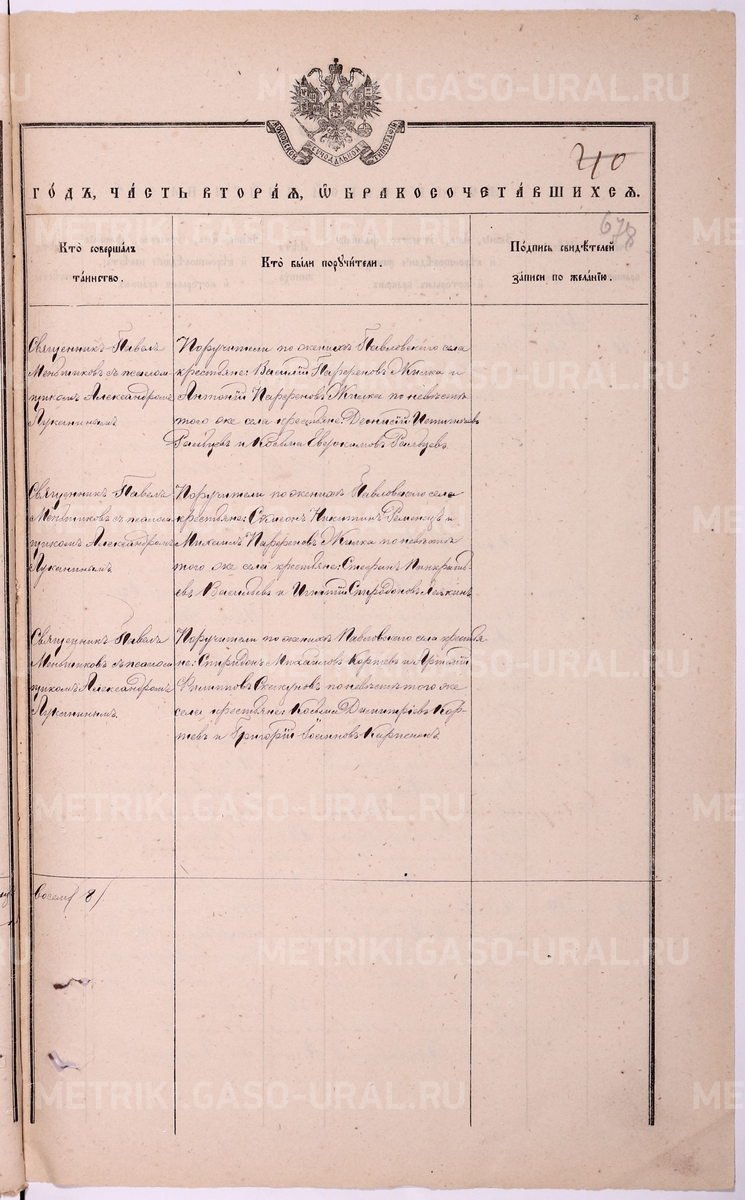 МОСКОВСКОЙ СѴНОДАЛЬНОЙ ТИПОГРАФІИ
40
ГО́ДЪ, ЧА́СТЬ ВТОРА́Ѧ, Ѽ БРАКОСОЧЕТА́ВШИХСѦ.
678
Кто̀ соверша́лъ
та́инство.
Кто̀ бы́ли порꙋчи́тели.
По́дпись свидѣ́телей
за́писи по жела́нїю.
Священникъ Павелъ
Меньшиковъ съ псалом
щикомъ Александромъ
Лукинымъ
Поручители по женихѣ Павловскаго села
крестьяне: Василій Парѳеновъ Жилка и
Антоній Парѳеновъ Жилка по невѣстѣ
того же села крестьяне: Діонисій
и Косьма
Священникъ Павелъ
Меньшиковъ съ псалом
щикомъ Александромъ
Лукинымъ
Поручители по женихѣ Павловскаго села
крестьяне: Сѷмеонъ Никитинъ и
Михаилъ Парѳеновъ Жилка по невѣстѣ
того же села крестьяне: Стефанъ Панкратi
евъ Васильевъ и Игнатій Спиридоновъ
Священникъ Павелъ
Меньшиковъ съ псалом
щикомъ Александромъ
Лукинымъ.
Поручители по женихѣ Павловскаго села крестья
не: Спиридонъ Михаиловъ Корневъ и Артемій
Филипповъ по невѣстѣ того же
села крестьяне: Косьма Димитріевъ Кор
невъ и Григорій Іоанновъ
Восемь (8)
METRIKI.GASO-URAL.RU